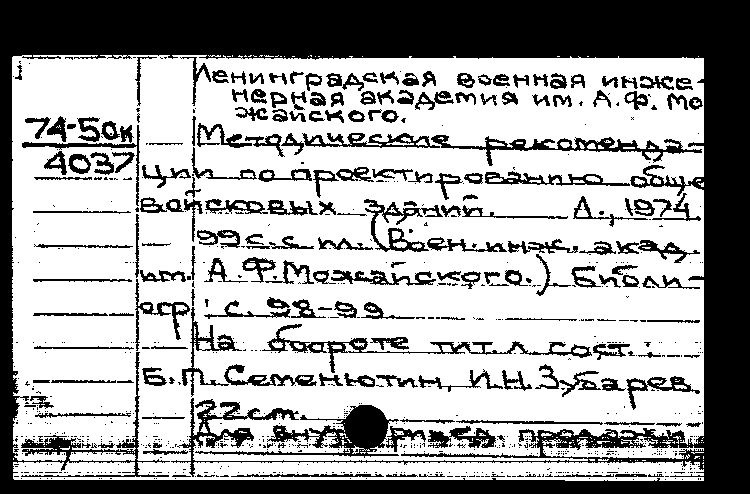 Ленинградская военная инже-
нерная академия им. А.Ф. Мо
жайского.
74-50к
4037
Методические рекоменда-
ции по проектированию обще
войсковых зданий. Л., 1974.
99 с. с ил. (Воен. инж. акад.
им. А.Ф. Можайского.). Библи-
огр.: с. 98-99.
На обороте тит. л. сост.:
Б.П. Семенютин, И.Н. Зубарев.
22 см.
Для